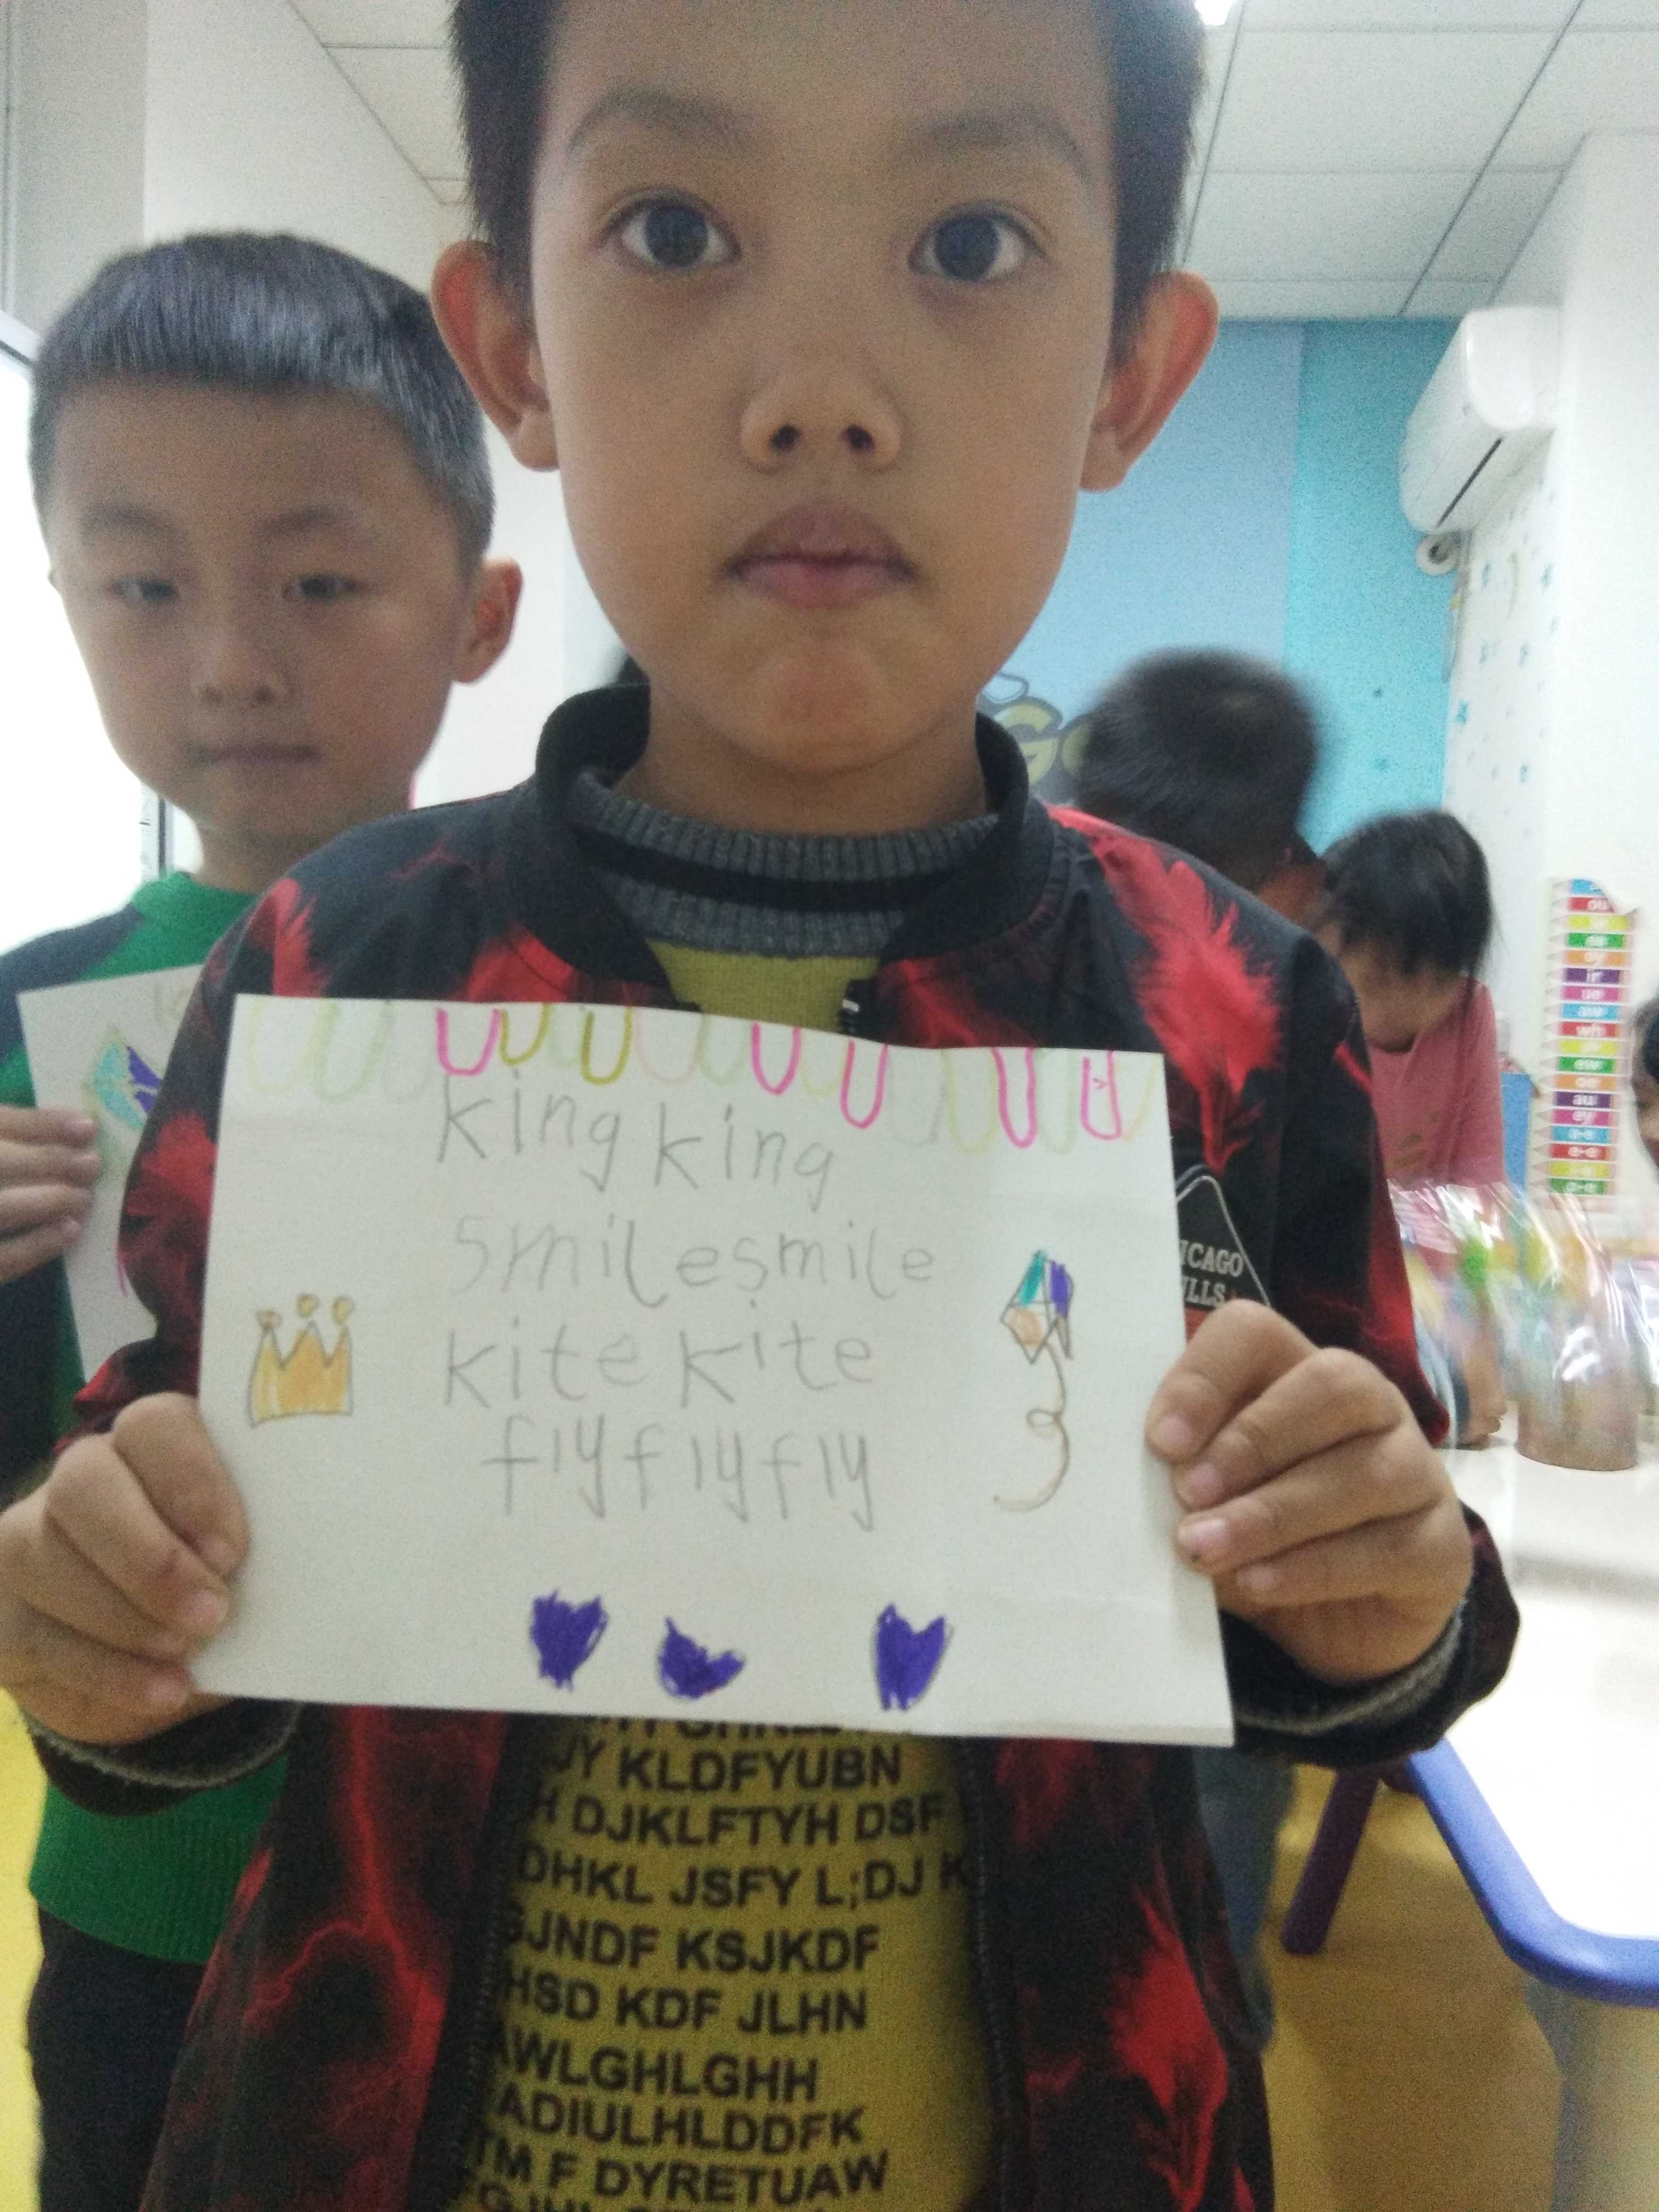 king king
smile smile
kite kite
fly fly fly
ICAGO
ULLS
JY KLDFYUBN
H DJKLFTYH DSF
DHKL JSFY L;DJ K
GJNDF KSJKDF
HSD KDF JLHN
AWLGHLGHH
ADIULHLDDFK
TM F DYRETUAW
ou
ay
ir
ue
aw
wh
ew
oe
au
ey
a-e
e-e
o-e